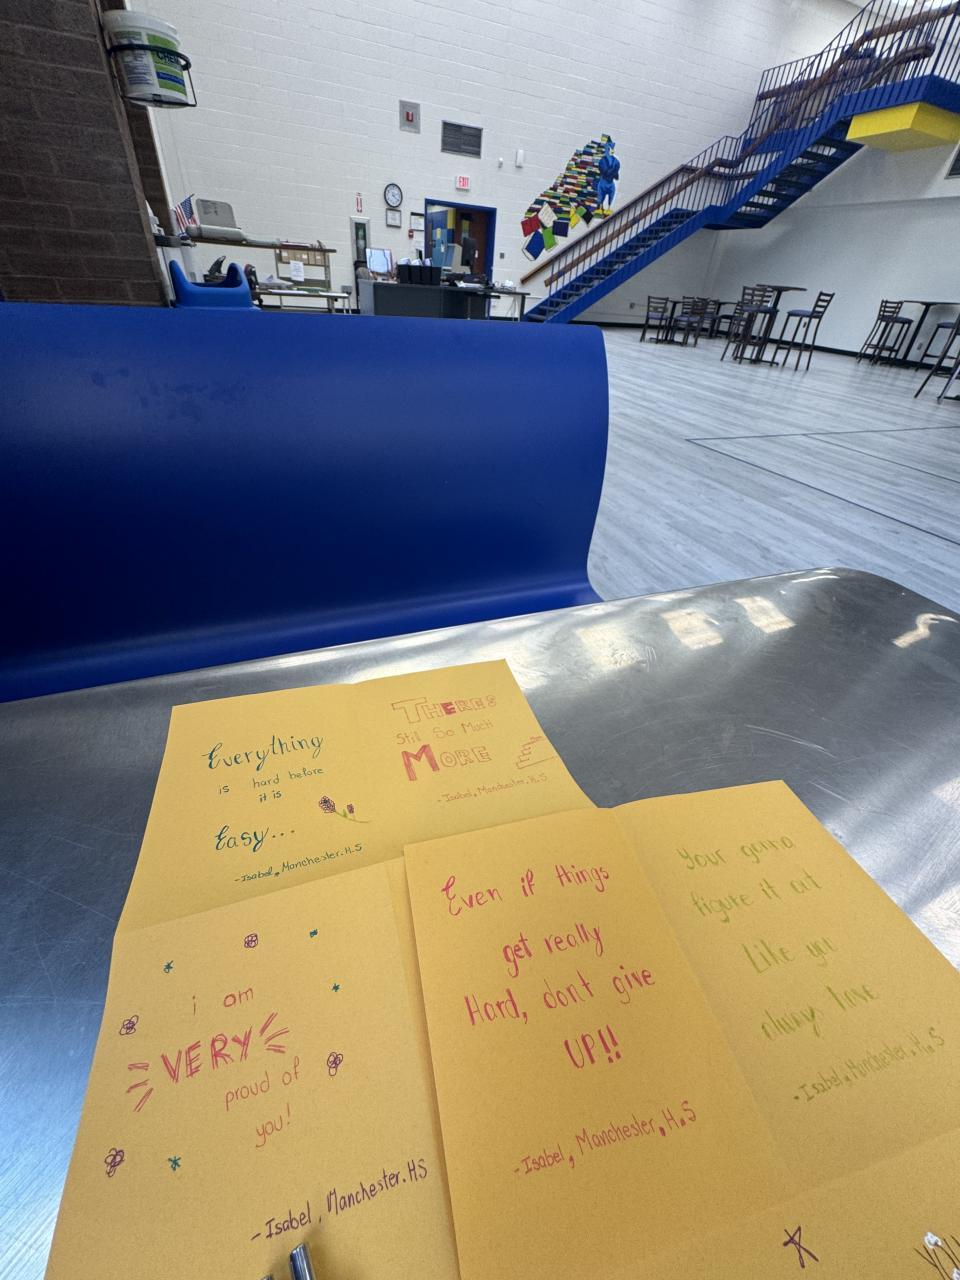 EXIT
Everything
is hard before
it is
Easy...
-Isabel, Manchester.H.S
THERES
Still So Much
MORE
-Isabel, Manchester.H.S
i am
VERY
proud of
you!
-Isabel, Manchester.HS
Even if things
get really
Hard, dont give
UP!!
-Isabel, Manchester, H.S
Your gonna
figure it out
Like you
always have
-Isabel, Manchester, H.S